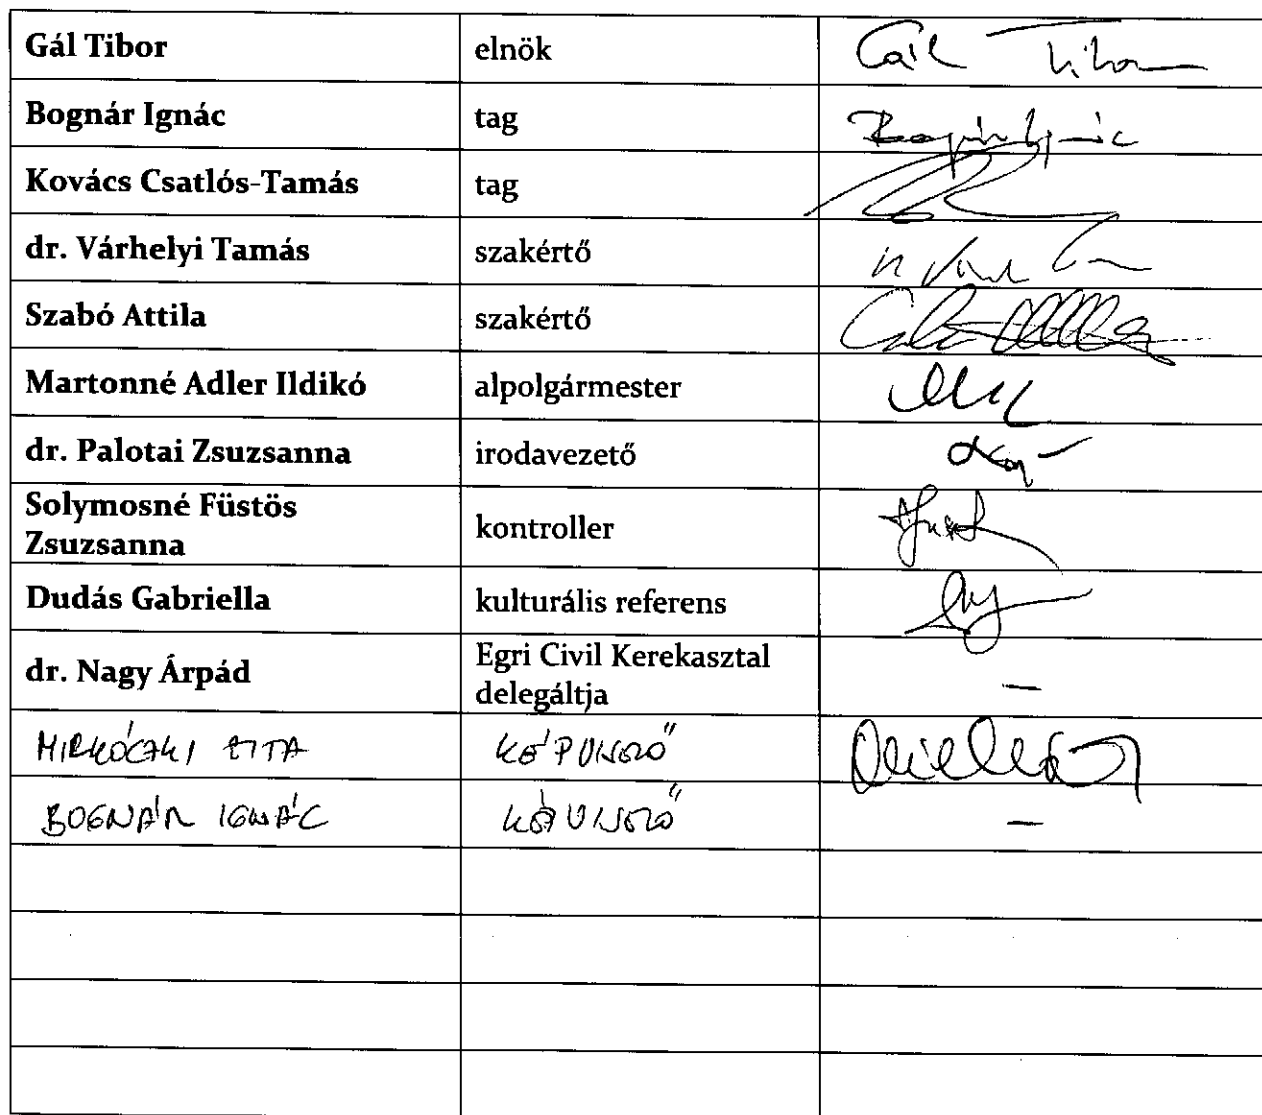 Gál Tibor elnök Gál Tibor
Bognár Ignác tag Bognár Ignác
Kovács Csatlós-Tamás tag
dr. Várhelyi Tamás szakértő
Szabó Attila szakértő
Martonné Adler Ildikó alpolgármester
dr. Palotai Zsuzsanna irodavezető
Solymosné Füstös
Zsuzsanna kontroller
Dudás Gabriella kulturális referens
dr. Nagy Árpád Egri Civil Kerekasztal
delegáltja –
MIRKÓCZKI ZITA KÉPVISELŐ
BOGNÁR IGNÁC KÉPVISELŐ –